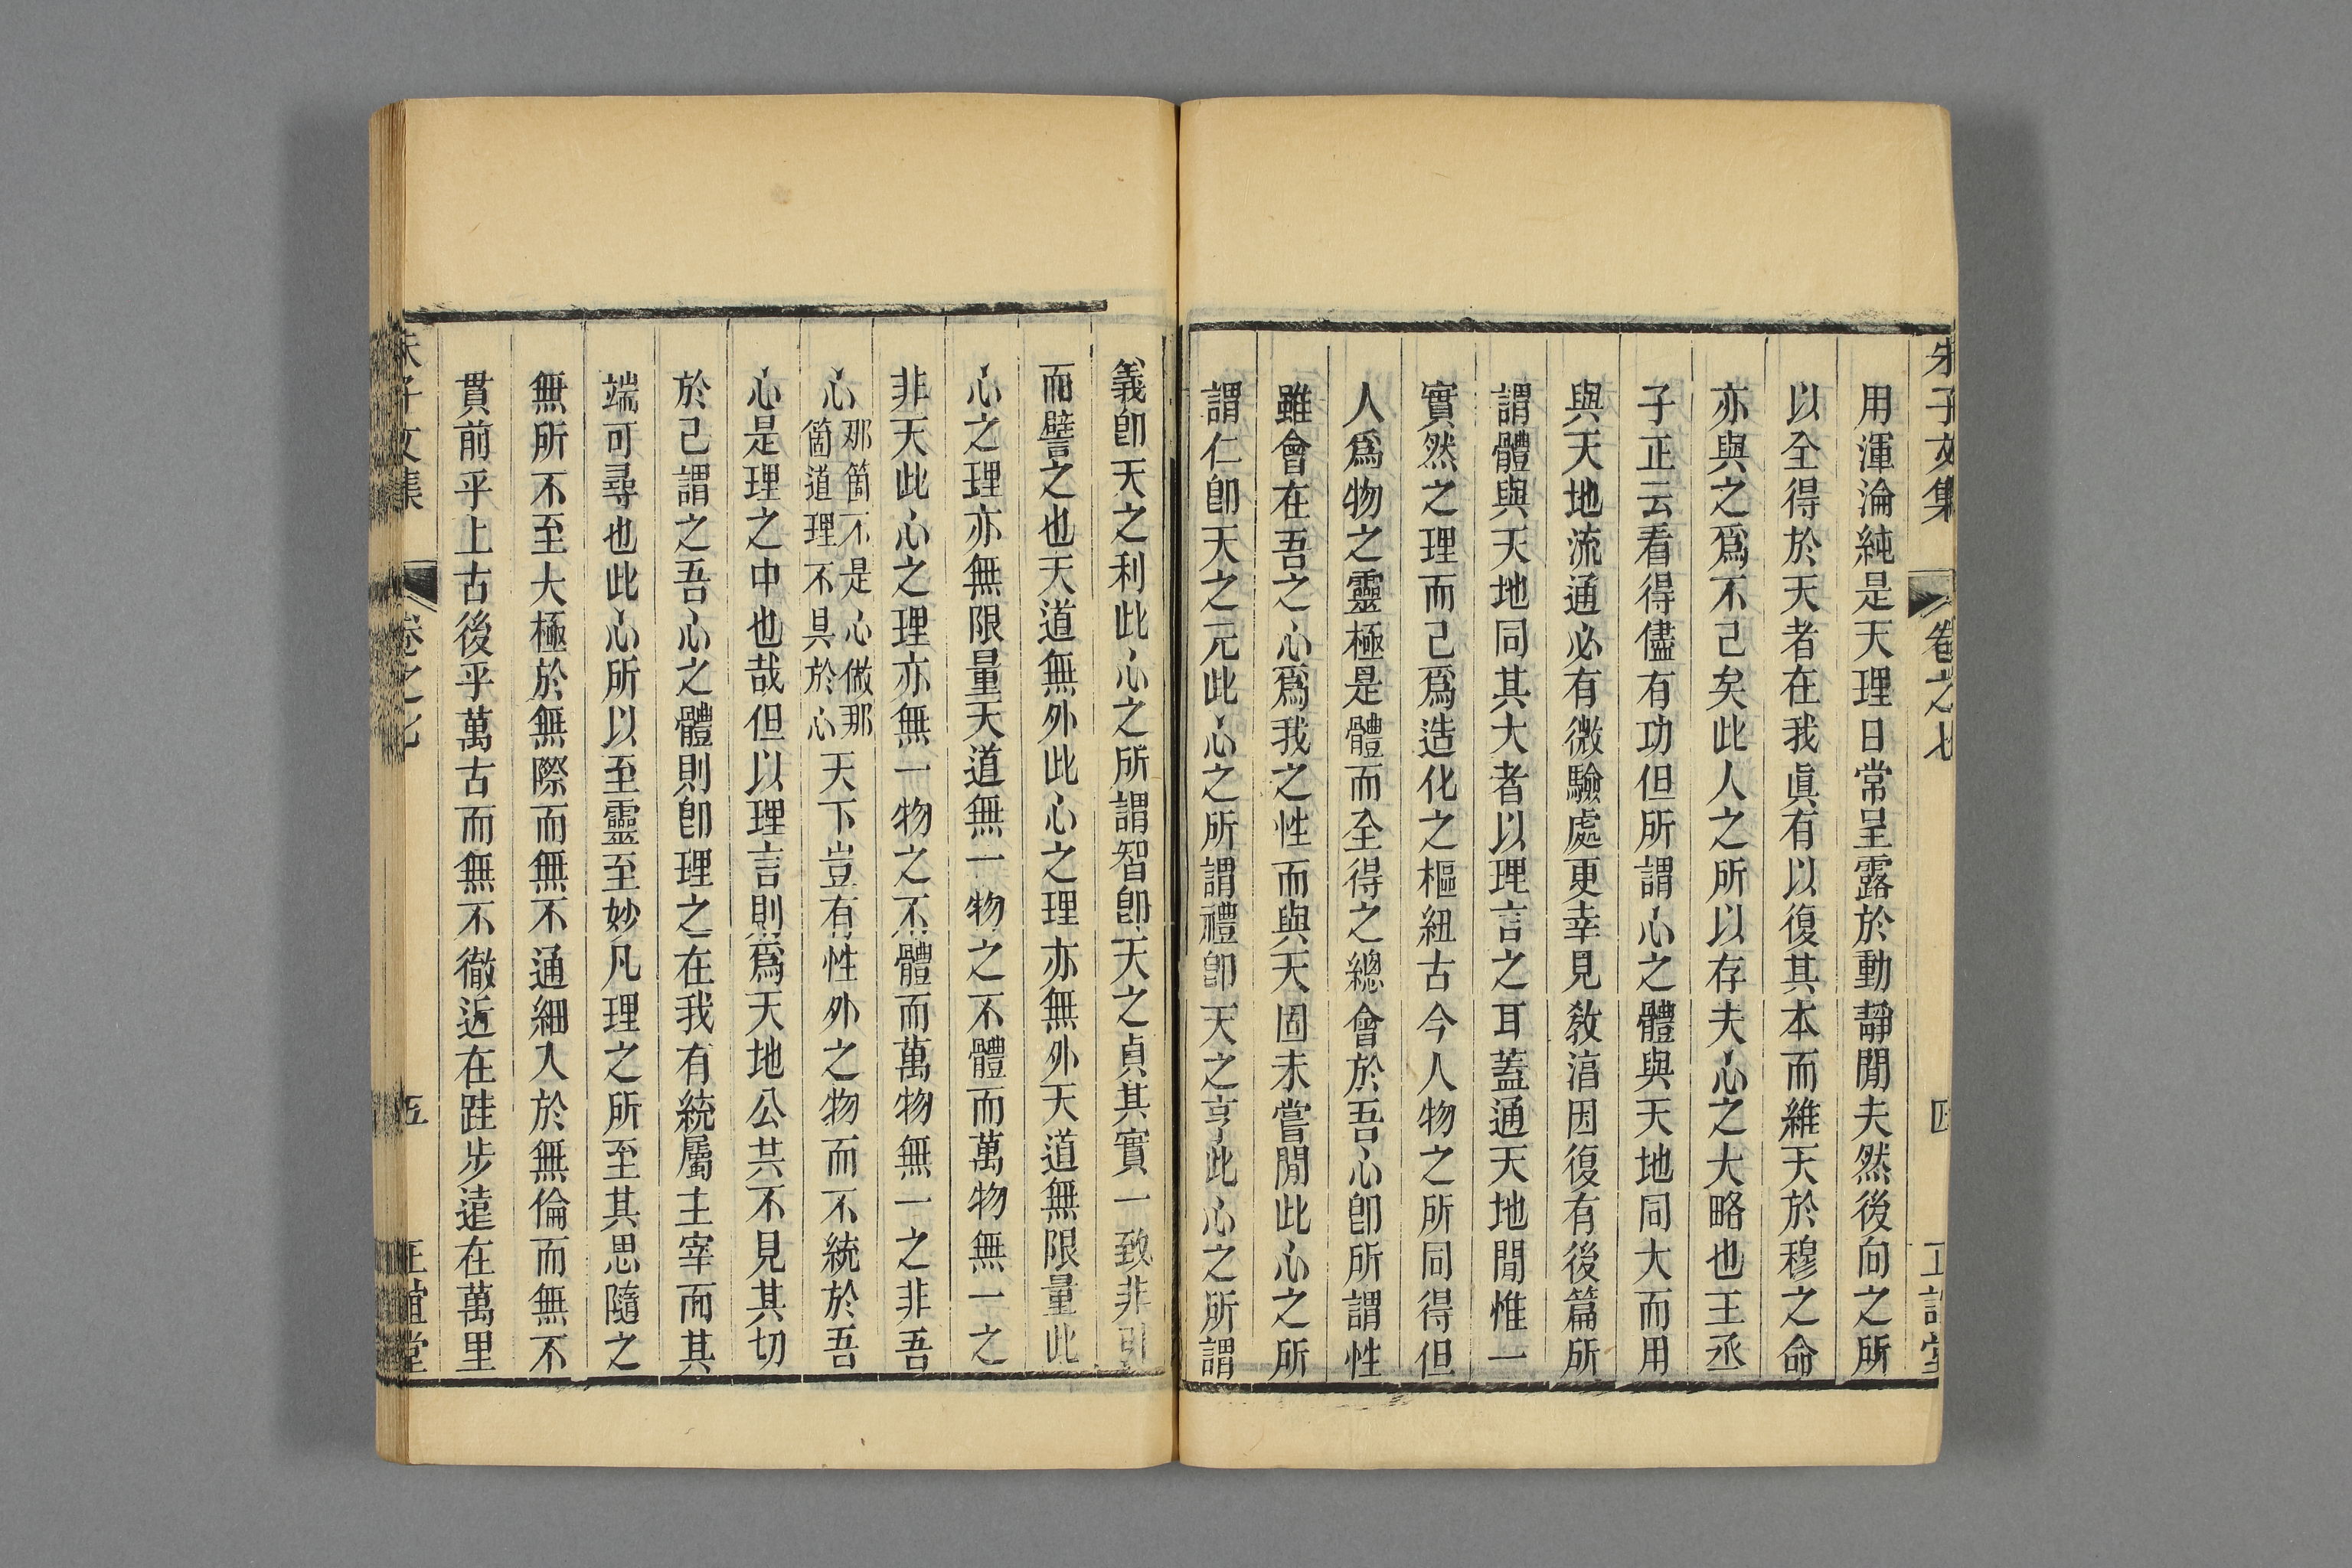 朱子文集 卷之七 四 正誼堂
用渾淪純是天理日常呈露於動靜閒夫然後向之所
以全得於天者在我眞有以復其本而維天於穆之命
亦與之爲不已矣此人之所以存夫心之大略也王丞
子正云看得儘有功但所謂心之體與天地同大而用
與天地流通必有微驗處更幸見敎淳因復有後篇所
謂體與天地同其大者以理言之耳蓋通天地閒惟一
實然之理而已爲造化之樞紐古今人物之所同得但
人爲物之靈極是體而全得之總會於吾心卽所謂性
雖會在吾之心爲我之性而與天固未嘗閒此心之所
謂仁卽天之元此心之所謂禮卽天之亨此心之所謂
義卽天之利此心之所謂智卽天之貞其實一致非引
而譬之也天道無外此心之理亦無外天道無限量此
心之理亦無限量天道無一物之不體而萬物無一之
非天此心之理亦無一物之不體而萬物無一之非吾
心那箇不是心做那箇道理不具於心天下豈有性外之物而不統於吾
心是理之中也哉但以理言則爲天地公共不見其切
於己謂之吾心之體則卽理之在我有統屬主宰而其
端可尋也此心所以至靈至妙凡理之所至其思隨之
無所不至大極於無際而無不通細入於無倫而無不
貫前乎上古後乎萬古而無不徹近在跬步遠在萬里
朱子文集 卷之七 五 正誼堂